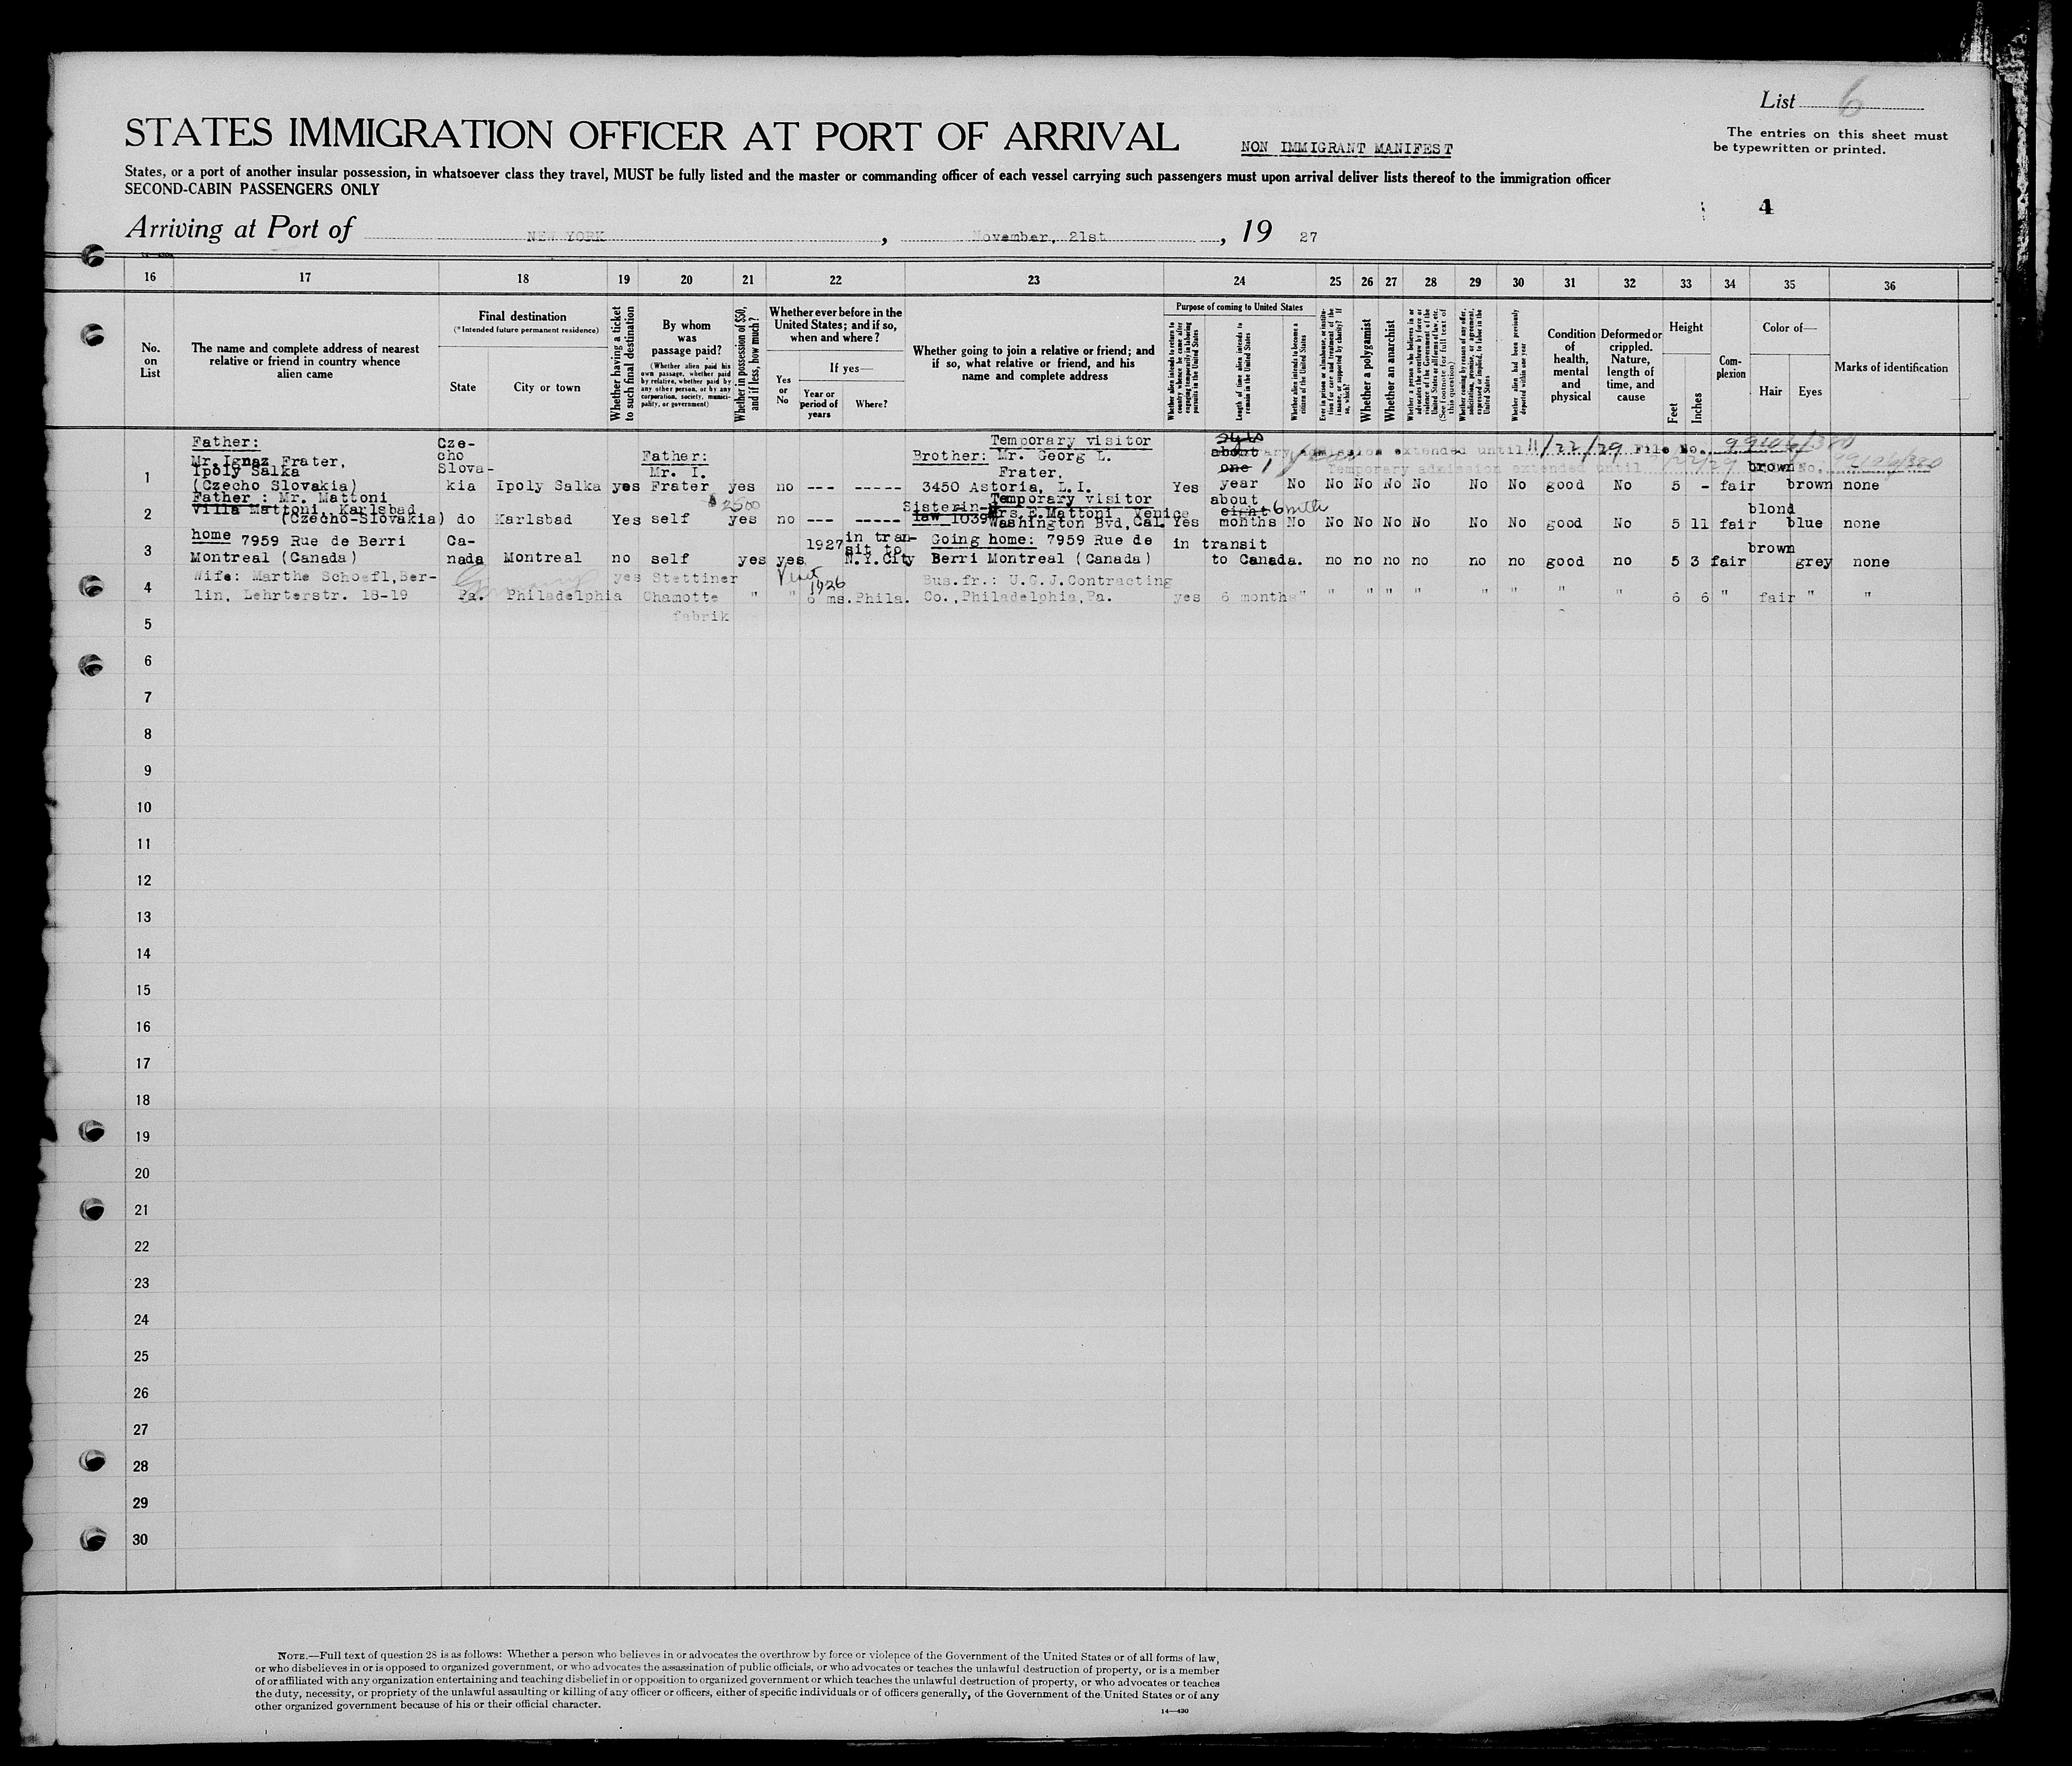 List 6
STATES IMMIGRATION OFFICER AT PORT OF ARRIVAL
NON IMMIGRANT MANIFEST
The entries on this sheet must
be typewritten or printed.
States, or a port of another insular possession, in whatsoever class they travel, MUST be fully listed and the master or commanding officer of each vessel carrying such passengers must upon arrival deliver lists thereof to the immigration officer
SECOND-CABIN PASSENGERS ONLY
4
Arriving at Port of NEW YORK, November, 21st, 19 27
16 17 18 19 20 21 22 23 24 25 26 27 28 29 30 31 32 33 34 35 36
No. on List
The name and complete address of nearest
relative or friend in country whence
alien came
Final destination
(*Intended future permanent residence)
State
City or town
Whether having a ticket
to such final destination
By whom
was
passage paid?
(Whether alien paid his
own passage, whether paid
by relative, whether paid by
any other person, or by any
corporation, society, munici-
pality, or government)
Whether in possession of $50,
and if less, how much?
Whether ever before in the
United States; and if so,
when and where?
Yes
or
No
If yes—
Year or
period of
years
Where?
Whether going to join a relative or friend; and
if so, what relative or friend, and his
name and complete address
Purpose of coming to United States
Whether alien intends to return to
country whence he came after
engaging temporarily in laboring
pursuits in the United States
Length of time alien intends to
remain in the United States
Whether alien intends to become a
citizen of the United States
Ever in prison or almshouse, or institu-
tion for care and treatment of the
insane, or supported by charity? If
so, which?
Whether a polygamist
Whether an anarchist
Whether a person who believes in or
advocates the overthrow by force or
violence of the Government of the
United States or all forms of law, etc.
(See footnote for full text of
this question.)
Whether coming by reason of any offer,
solicitation, promise, or agreement,
expressed or implied, to labor in the
United States
Whether alien had been previously
deported within one year
Condition
of
health,
mental
and
physical
Deformed or
crippled.
Nature,
length of
time, and
cause
Height
Feet
Inches
Com-
plexion
Color of—
Hair
Eyes
Marks of identification
1
Father:
Mr. Ignaz Frater,
Ipoly Salka
(Czecho Slovakia)
Cze-
cho
Slova-
kia
Ipoly Salka yes
Father:
Mr. I.
Frater
yes no --- -----
Temporary visitor
Brother: Mr. Georg L.
Frater,
3450 Astoria, L.I.
Yes
about
one 1 year
year
ary admission extended until 11/22/29 File No.
Temporary admission extended until No. 99106/380
No No No No No No No good No 5 - fair brown brown none
2
Father : Mr. Mattoni
Villa Mattoni, Karlsbad
(Czecho-Slovakia)
do Karlsbad Yes self
$2500
yes no --- -----
Temporary visitor
Sister in
law 1039
Mrs.E.Mattoni Venice
Washington Bvd, Cal.
Yes
about
eight 6 mths
months
No No No No No No No good No 5 11 fair blond blue none
3
home 7959 Rue de Berri
Montreal (Canada)
Ca-
nada
Montreal no self yes yes 1927
in tran-
sit to
N.Y.City
Going home: 7959 Rue de
Berri Montreal (Canada)
in transit
to Canada.
no no no no no no good no 5 3 fair brown grey none
4
Wife: Marthe Schoefl,Ber-
lin, Lehrterstr. 18-19
Germany
Pa. Philadelphia
yes Stettiner
Chamotte
fabrik
" "
Visit
1926
6 ms.Phila.
Bus.fr.: U.G.J.Contracting
Co.,Philadelphia,Pa.
yes 6 months " " " " " " " " " 6 6 " fair " "
5
6
7
8
9
10
11
12
13
14
15
16
17
18
19
20
21
22
23
24
25
26
27
28
29
30
NOTE.—Full text of question 28 is as follows: Whether a person who believes in or advocates the overthrow by force or violence of the Government of the United States or of all forms of law,
or who disbelieves in or is opposed to organized government, or who advocates the assassination of public officials, or who advocates or teaches the unlawful destruction of property, or is a member
of or affiliated with any organization entertaining and teaching disbelief in or opposition to organized government or which teaches the unlawful destruction of property, or who advocates or teaches
the duty, necessity, or propriety of the unlawful assaulting or killing of any officer or officers, either of specific individuals or of officers generally, of the Government of the United States or of any
other organized government because of his or their official character.
14—430